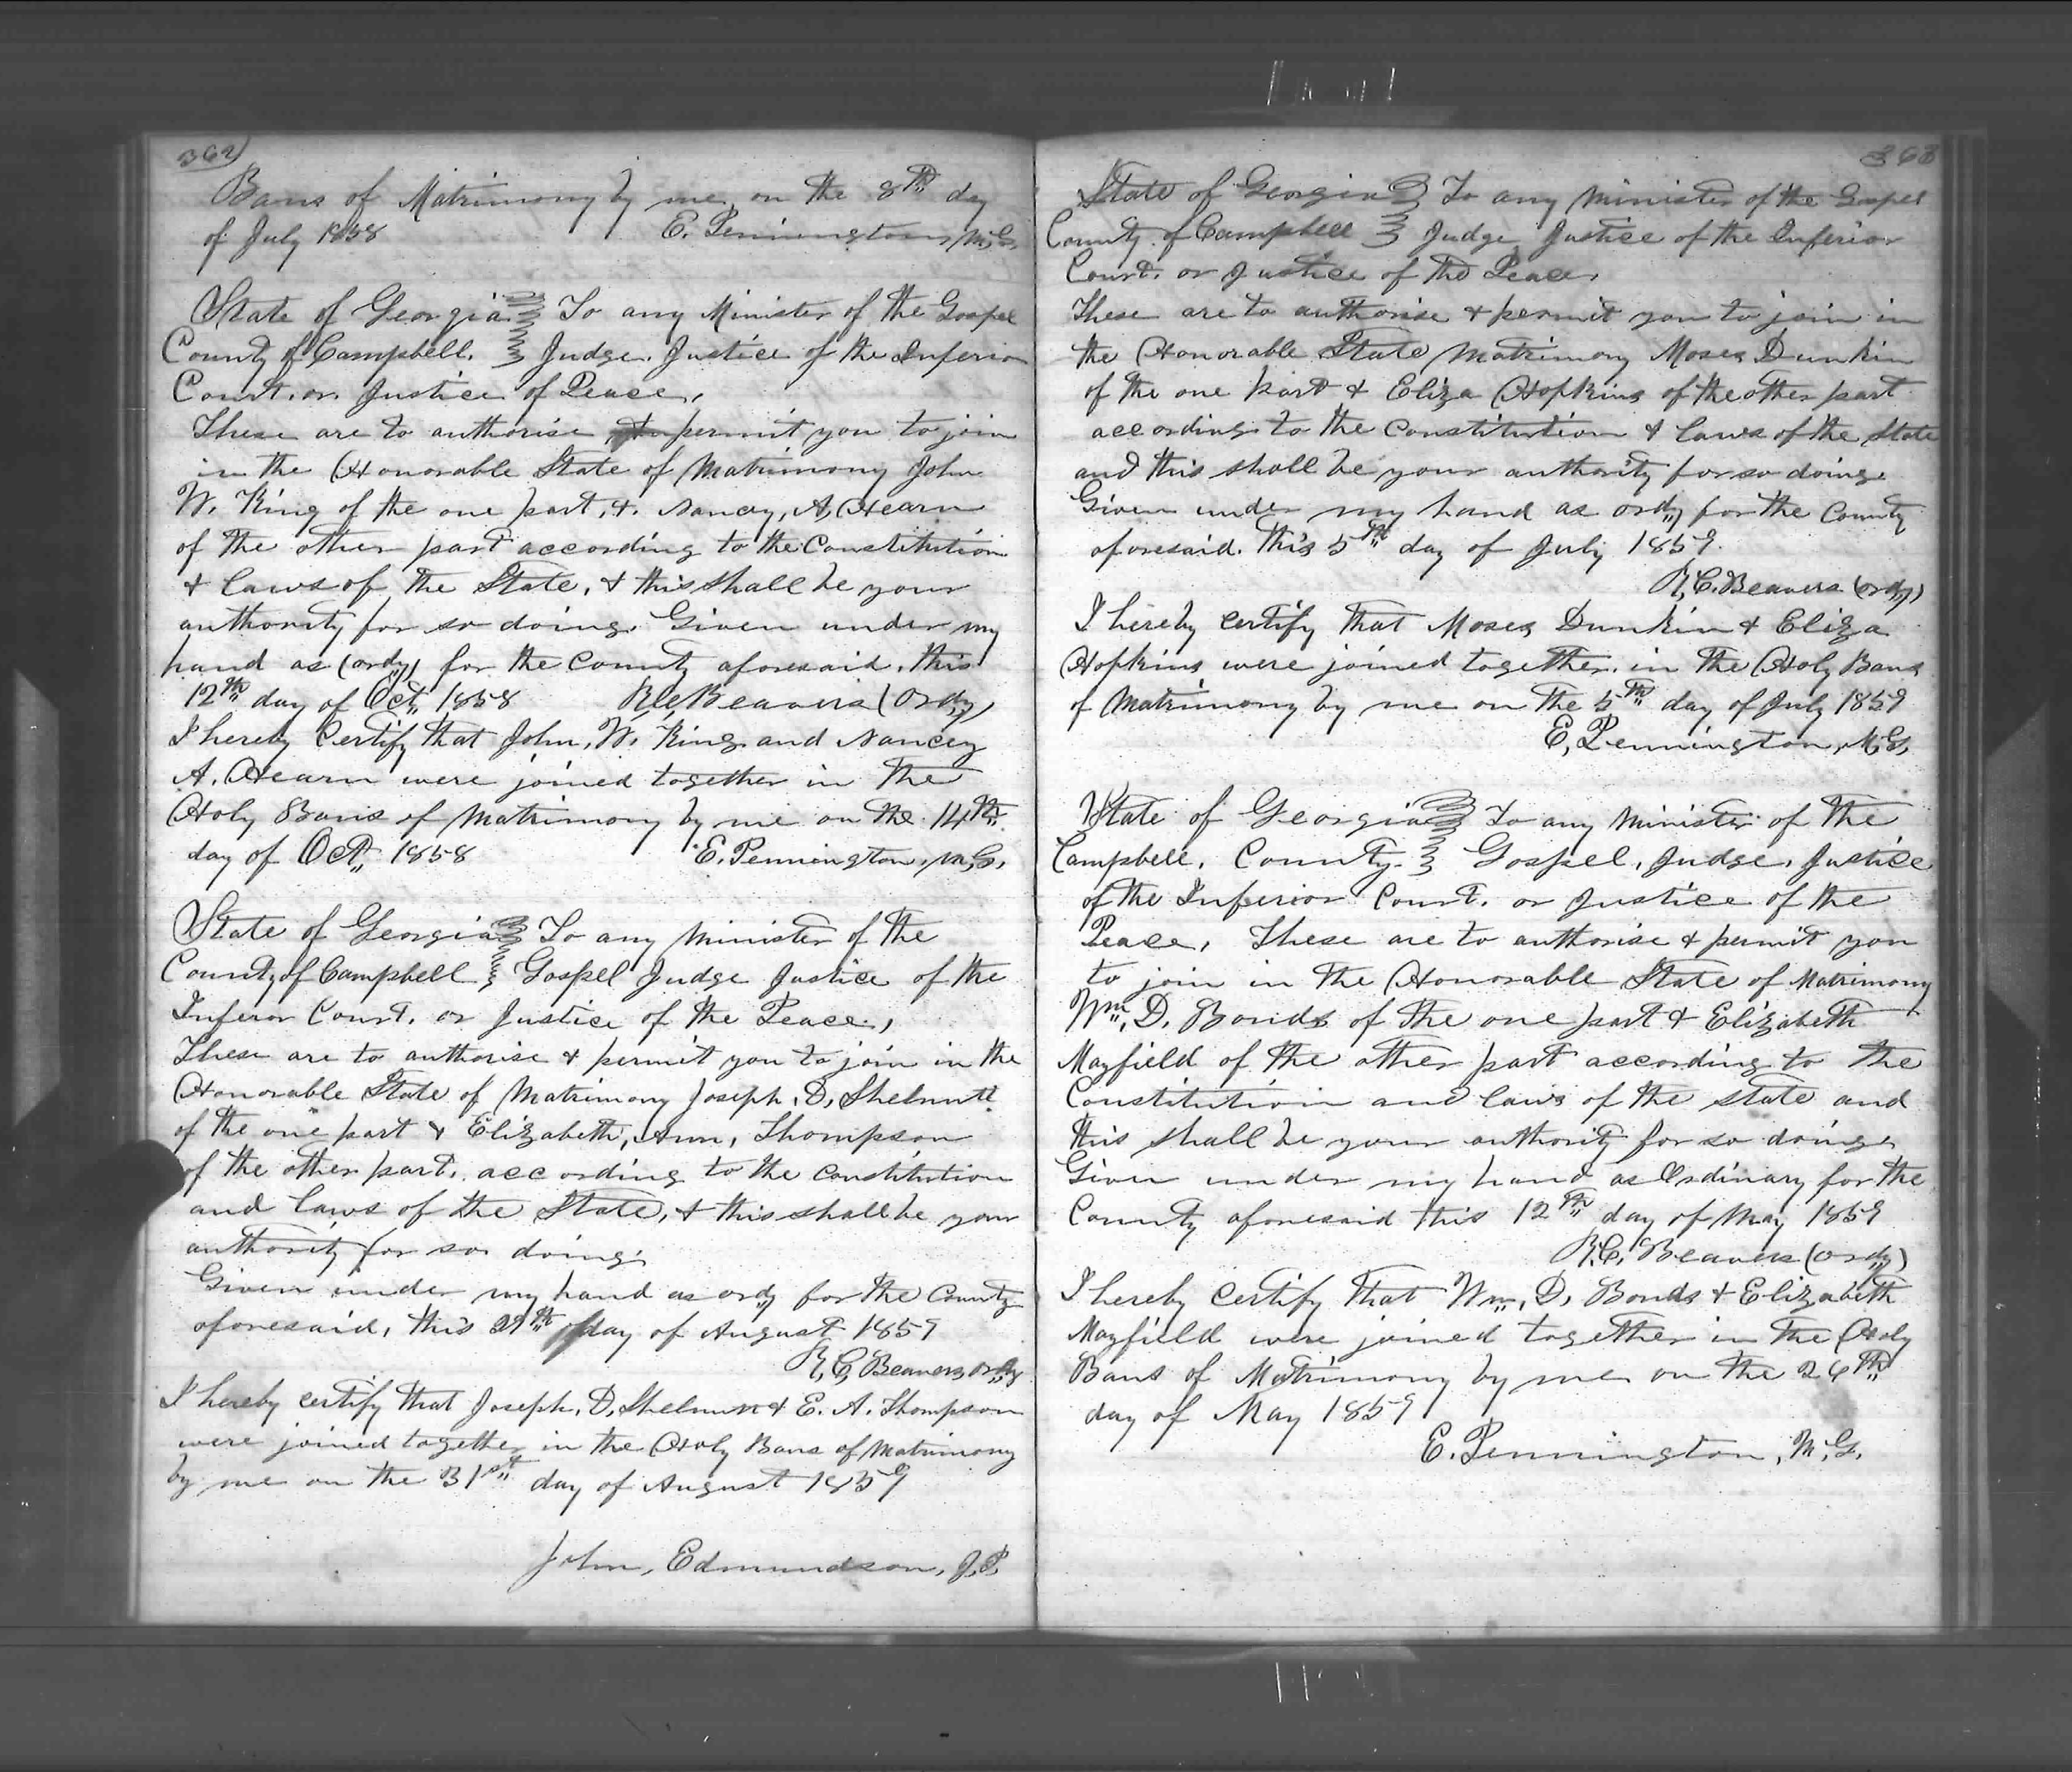 362
Bans of Matrimony by me on the 8th day
of July 1858 E. Pennington, M.G.
State of Georgia To any Minister of the Gospel
County of Campbell. Judge. Justice of the Inferior
Court. or. Justice of Peace,
These are to authorise permit you to join
in the Honorable State of Matrimony John
W. King of the one part, & Nancy, A, Hearn
of the other part according to the Constitution
& laws of the State, & this shall be your
authority for so doing. Given under my
hand as (ordy) for the County aforesaid, this
12th day of Oct, 1858 R.C. Beavers (Ordy)
I hereby Certify that John, W. King and Nancy
A. Hearn were joined together in the
Holy Bans of Matrimony by me on the 14th
day of Oct, 1858 E. Pennington, M.G.
State of Georgia To any Minister of the
County of Campbell Gospel Judge Justice of the
Inferor Court. or Justice of the Peace,
These are to authorise & permit you to join in the
Honorable State of Matrimony Joseph, D, Shelnutt
of the one part & Elizabeth, Ann, Thompson
of the other part, according to the constitution
and laws of the State, & this shall be your
authority for so doing.
Given under my hand as ordy for the County
aforesaid, this 29th day of August 1859
R, C, Beavers, ordy
I hereby certify that Joseph, D, Shelnutt & E. A. Thompson
were joined together in the Holy Bans of Matrimony
by me on the 31st day of August 1859
John, Edmundson, J.P.
363
State of Georgia To any Minister of the Gospel
County of Campbell Judge Justice of the Inferior
Court. or Justice of the Peace,
These are to authorise & permit you to join in
the Honorable State Matrimony Moses Dunkin
of the one part & Eliza Hopkins of the other part
according to the Constitution & laws of the State
and this shall be your authority for so doing.
Given under my hand as ordy for the County
aforesaid. this 5th day of July 1859.
R, C. Beavers (ordy)
I hereby certify that Moses Dunkin & Eliza
Hopkins were joined together in the Holy Bans
of Matrimony by me on the 5th day of July 1859
E, Pennington, M,G,
State of Georgia To any Minister of the
Campbell. County. Gospel, Judge, Justice
of the Inferior Court. or Justice of the
Peace, These are to authorise & permit you
to join in the Honorable State of Matrimony
Wm, D, Bonds of the one part & Elizabeth
Mayfield of the other part according to the
Constitution and laws of the State and
this shall be your authority for so doing.
Given under my hand as Ordinary for the
County aforesaid this 12th day of May 1859
R.C. Beavers (ordy)
I hereby certify that Wm, D, Bonds & Elizabeth
Mayfield were joined together in the Holy
Bans of Matrimony by me on the 26th
day of May 1859
E. Pennington, M.G.